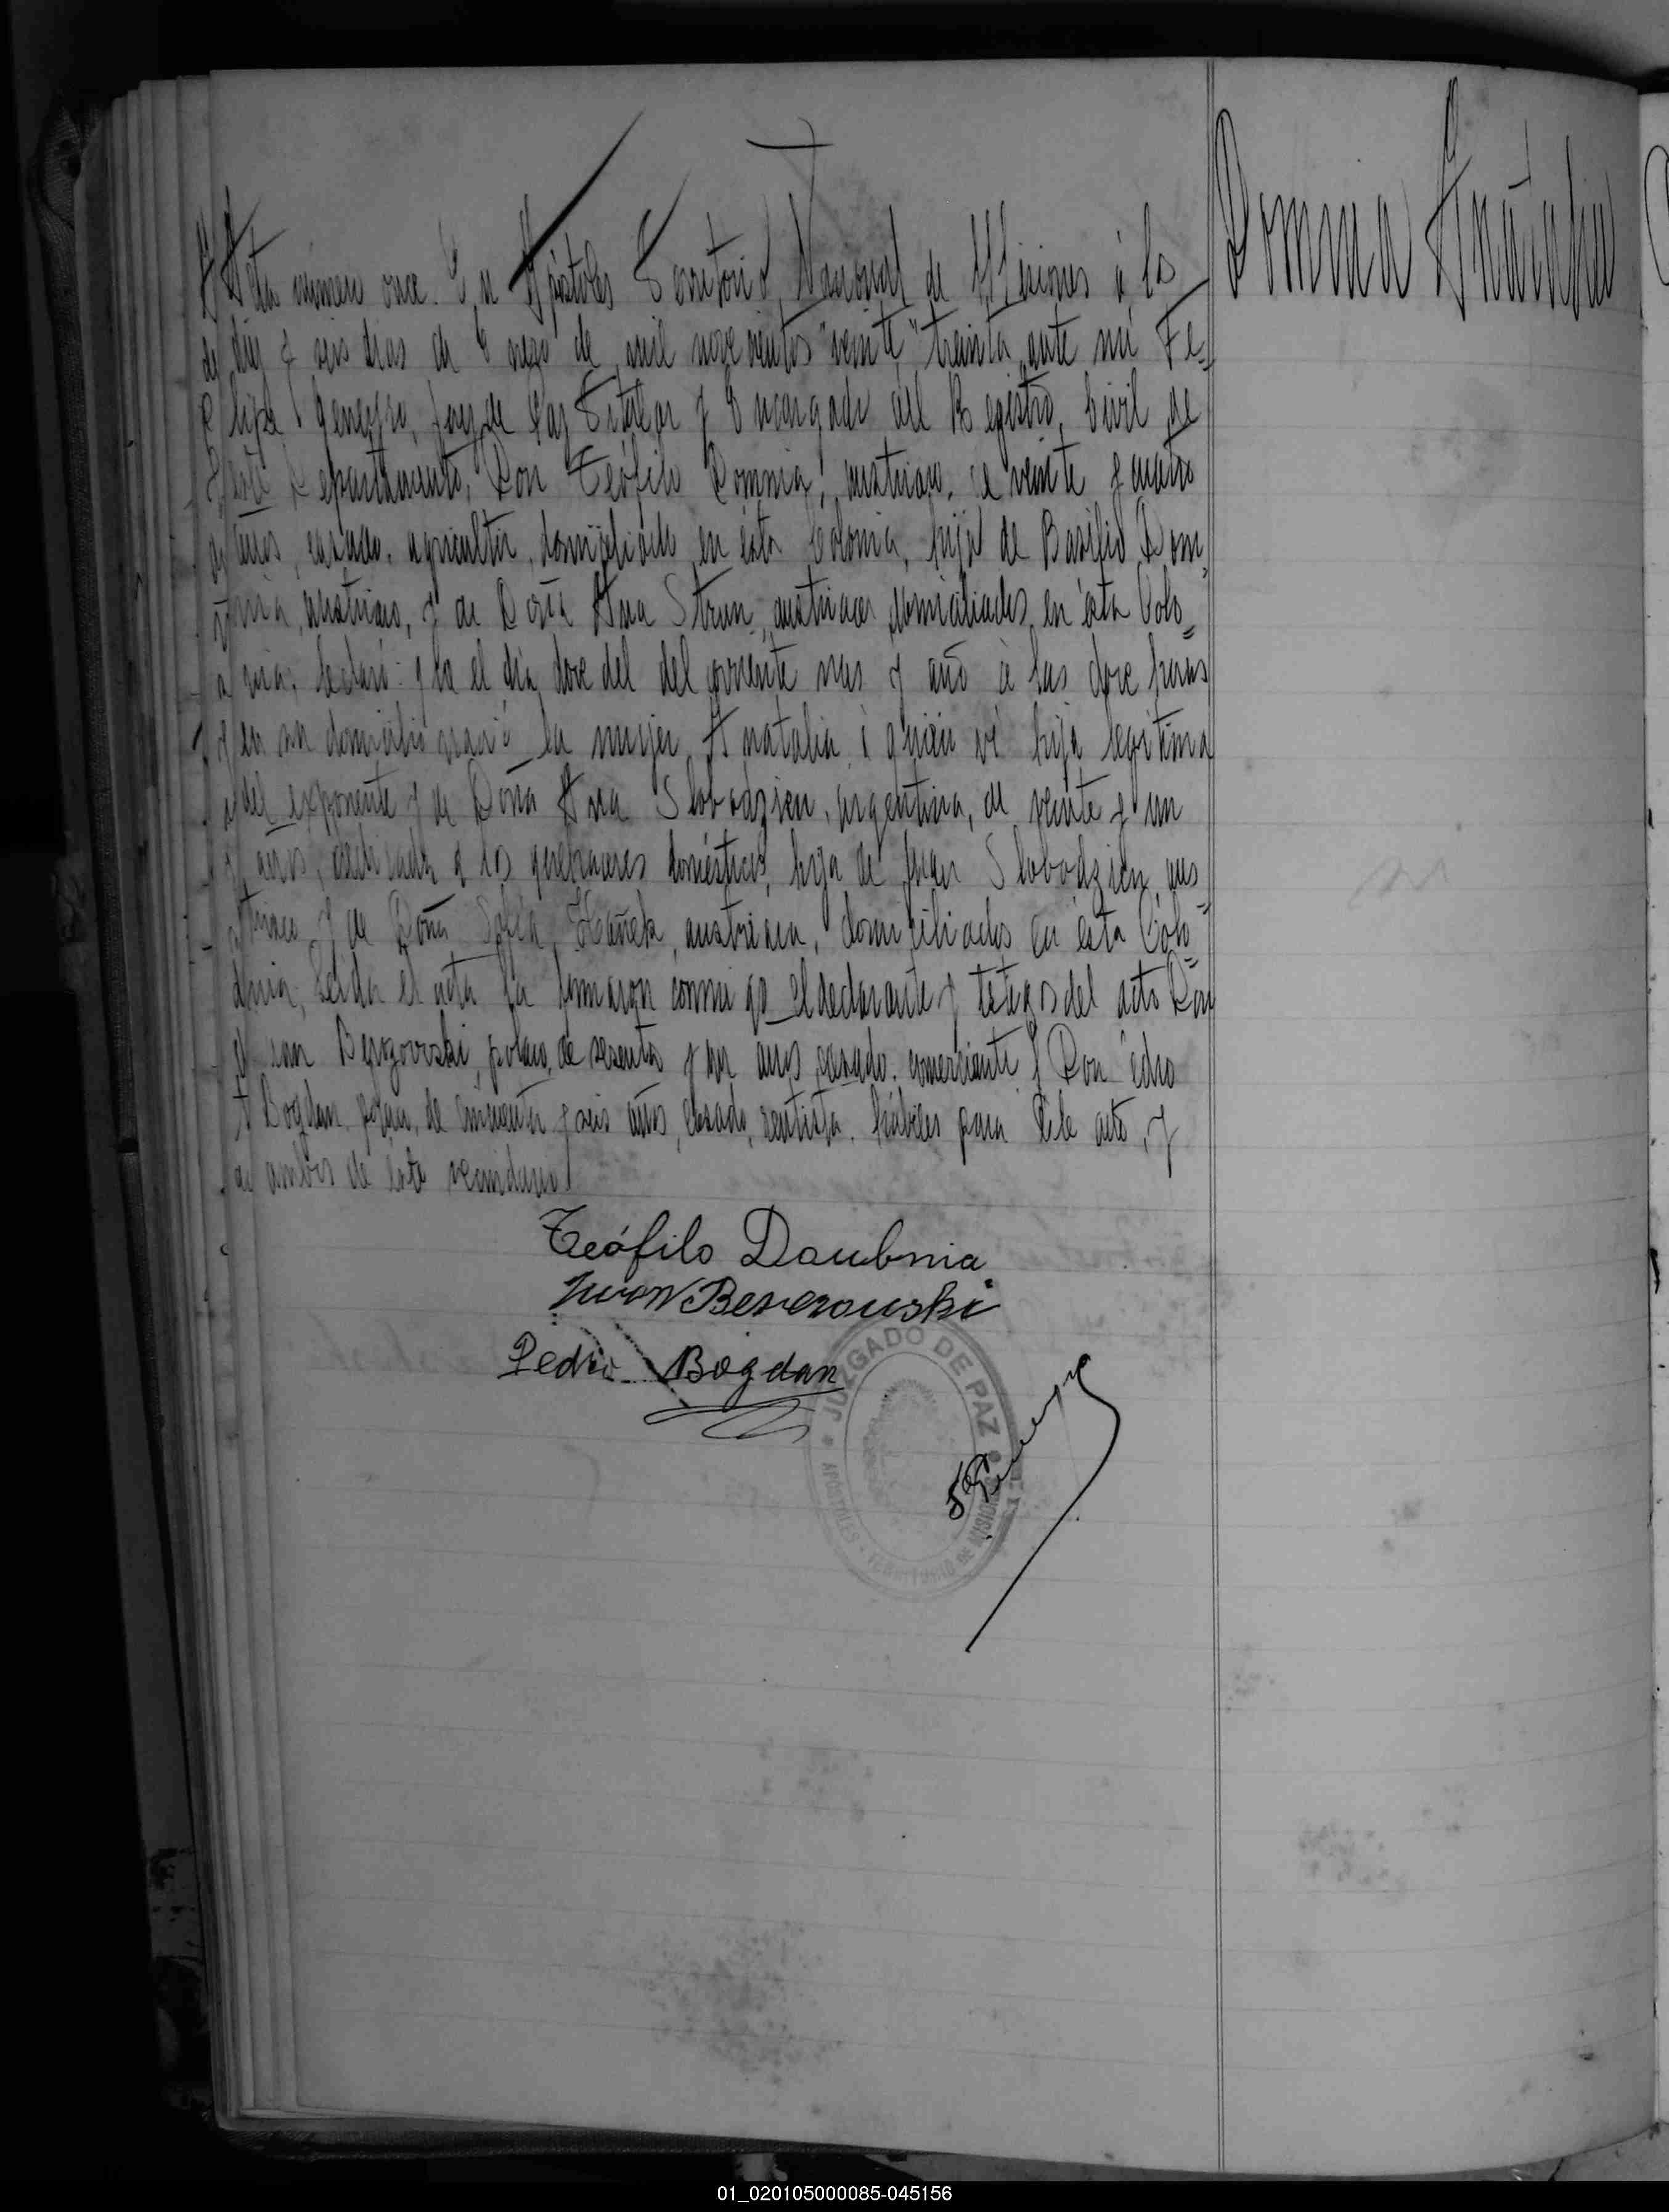 Domnia Anatalia
Acta número once. En Apóstoles Territorio Nacional de Misiones á los
diez y seis dias de Enero de mil novecientos "veinte" treinta, ante mí Fe=
lipe Juez de Paz Titular y Encargado del Registro Civil de
este Departamento, Don Teófilo Domnia, austriaco, de veinte y cuatro
años, casado, agricultor, domiciliado en ésta Colonia, hijo de Basilio Dom
nia, austriaco, y de Doña Ana Strun, austriacos domiciliados en ésta Colo=
nia, declaró: que el día doce del del corriente mes y año á las doce horas
y en su domicilio nació la mujer Anatalia á quién ví hija legítima
del exponente y de Doña Ana Slobodzien, argentina, de veinte y un
años, dedicada á los quehaceres domésticos, hija de Juan Slobodzien, aus=
triaco y de Doña Sofía Hañek, austriaca, domiciliados en ésta Colo=
nia; Leida el acta la firmaron conmigo el declarante y tetigos del acto Don
Berezovski, polaco, de sesenta y un años, casado, comerciante y Don Pedro
Bogdan, polaco, de cincuenta y seis años, casado, rentista, hábiles para éste acto, y
ambos de éste vecindario
Teófilo Doubnia
Iwan Berezowski
Pedro Bogdan
JUZGADO DE PAZ
APOSTOLES - TERRITORIO DE MISIONES
01_020105000085-045156